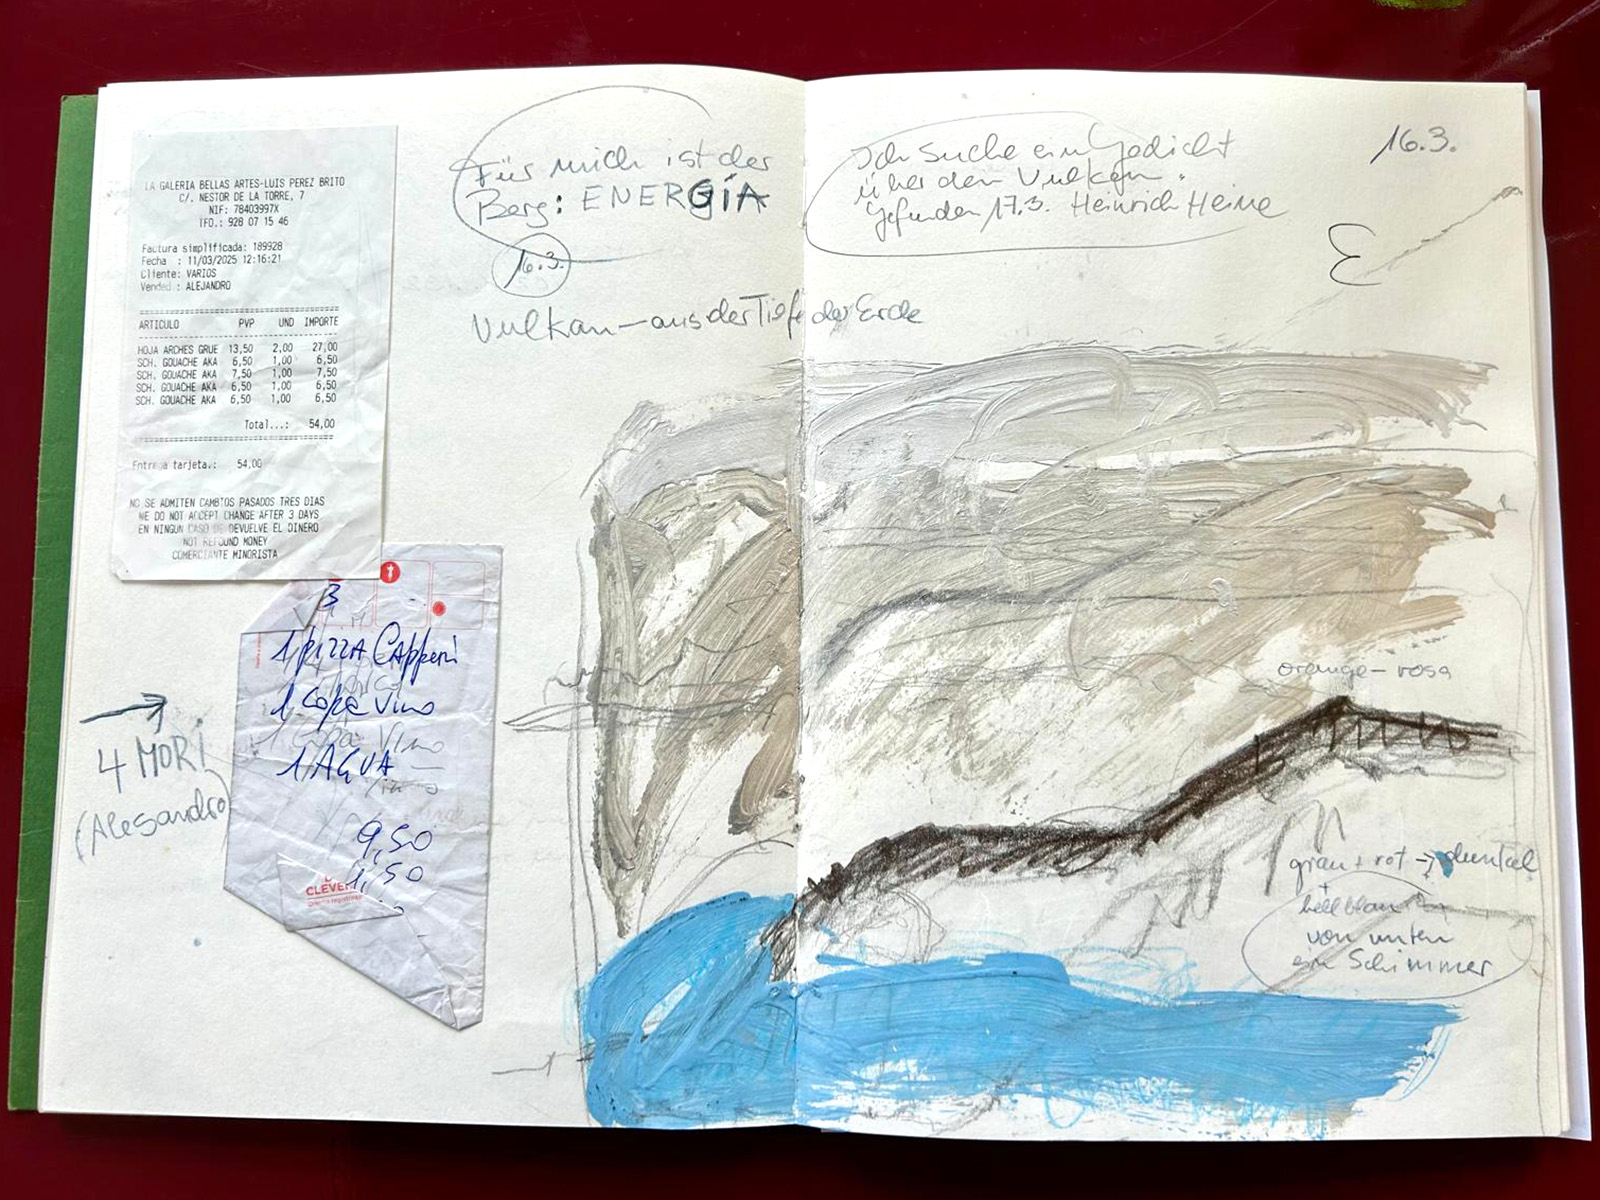 LA GALERIA BELLAS ARTES-LUIS PEREZ BRITO
C/. NESTOR DE LA TORRE, 7
NIF: 78403997X
TFO.: 928 07 15 46
Factura simplificada: 189928
Fecha : 11/03/2025 12:16:21
Cliente: VARIOS
Vended.: ALEJANDRO
ARTICULO PVP UND IMPORTE
HOJA ARCHES GRUE 13,50 2,00 27,00
SCH. GOUACHE AKA 6,50 1,00 6,50
SCH. GOUACHE AKA 7,50 1,00 7,50
SCH. GOUACHE AKA 6,50 1,00 6,50
SCH. GOUACHE AKA 6,50 1,00 6,50
Total...: 54,00
Entrega tarjeta.: 54,00
NO SE ADMITEN CAMBIOS PASADOS TRES DIAS
WE DO NOT ACCEPT CHANGE AFTER 3 DAYS
EN NINGUN CASO SE DEVUELVE EL DINERO
NOT REFOUND MONEY
COMERCIANTE MINORISTA
3
1 PIZZA CAPPERI
1 Copa Vino
Copa Vino
1 AGUA
9,50
1,50
CLEVER
4 MORI
(Alesandro)
Für mich ist der
Berg: ENERGÍA
16.3.
Vulkan – aus der Tiefe der Erde
Ich suche ein Gedicht
über den Vulkan.
gefunden 17.3. Heinrich Heine
16.3.
orange – rosa
grau + rot → dunkel
+
hellblau
von unten
ein Schimmer